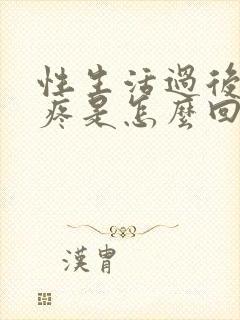 性生活過後
疼是怎麼回
漢胄